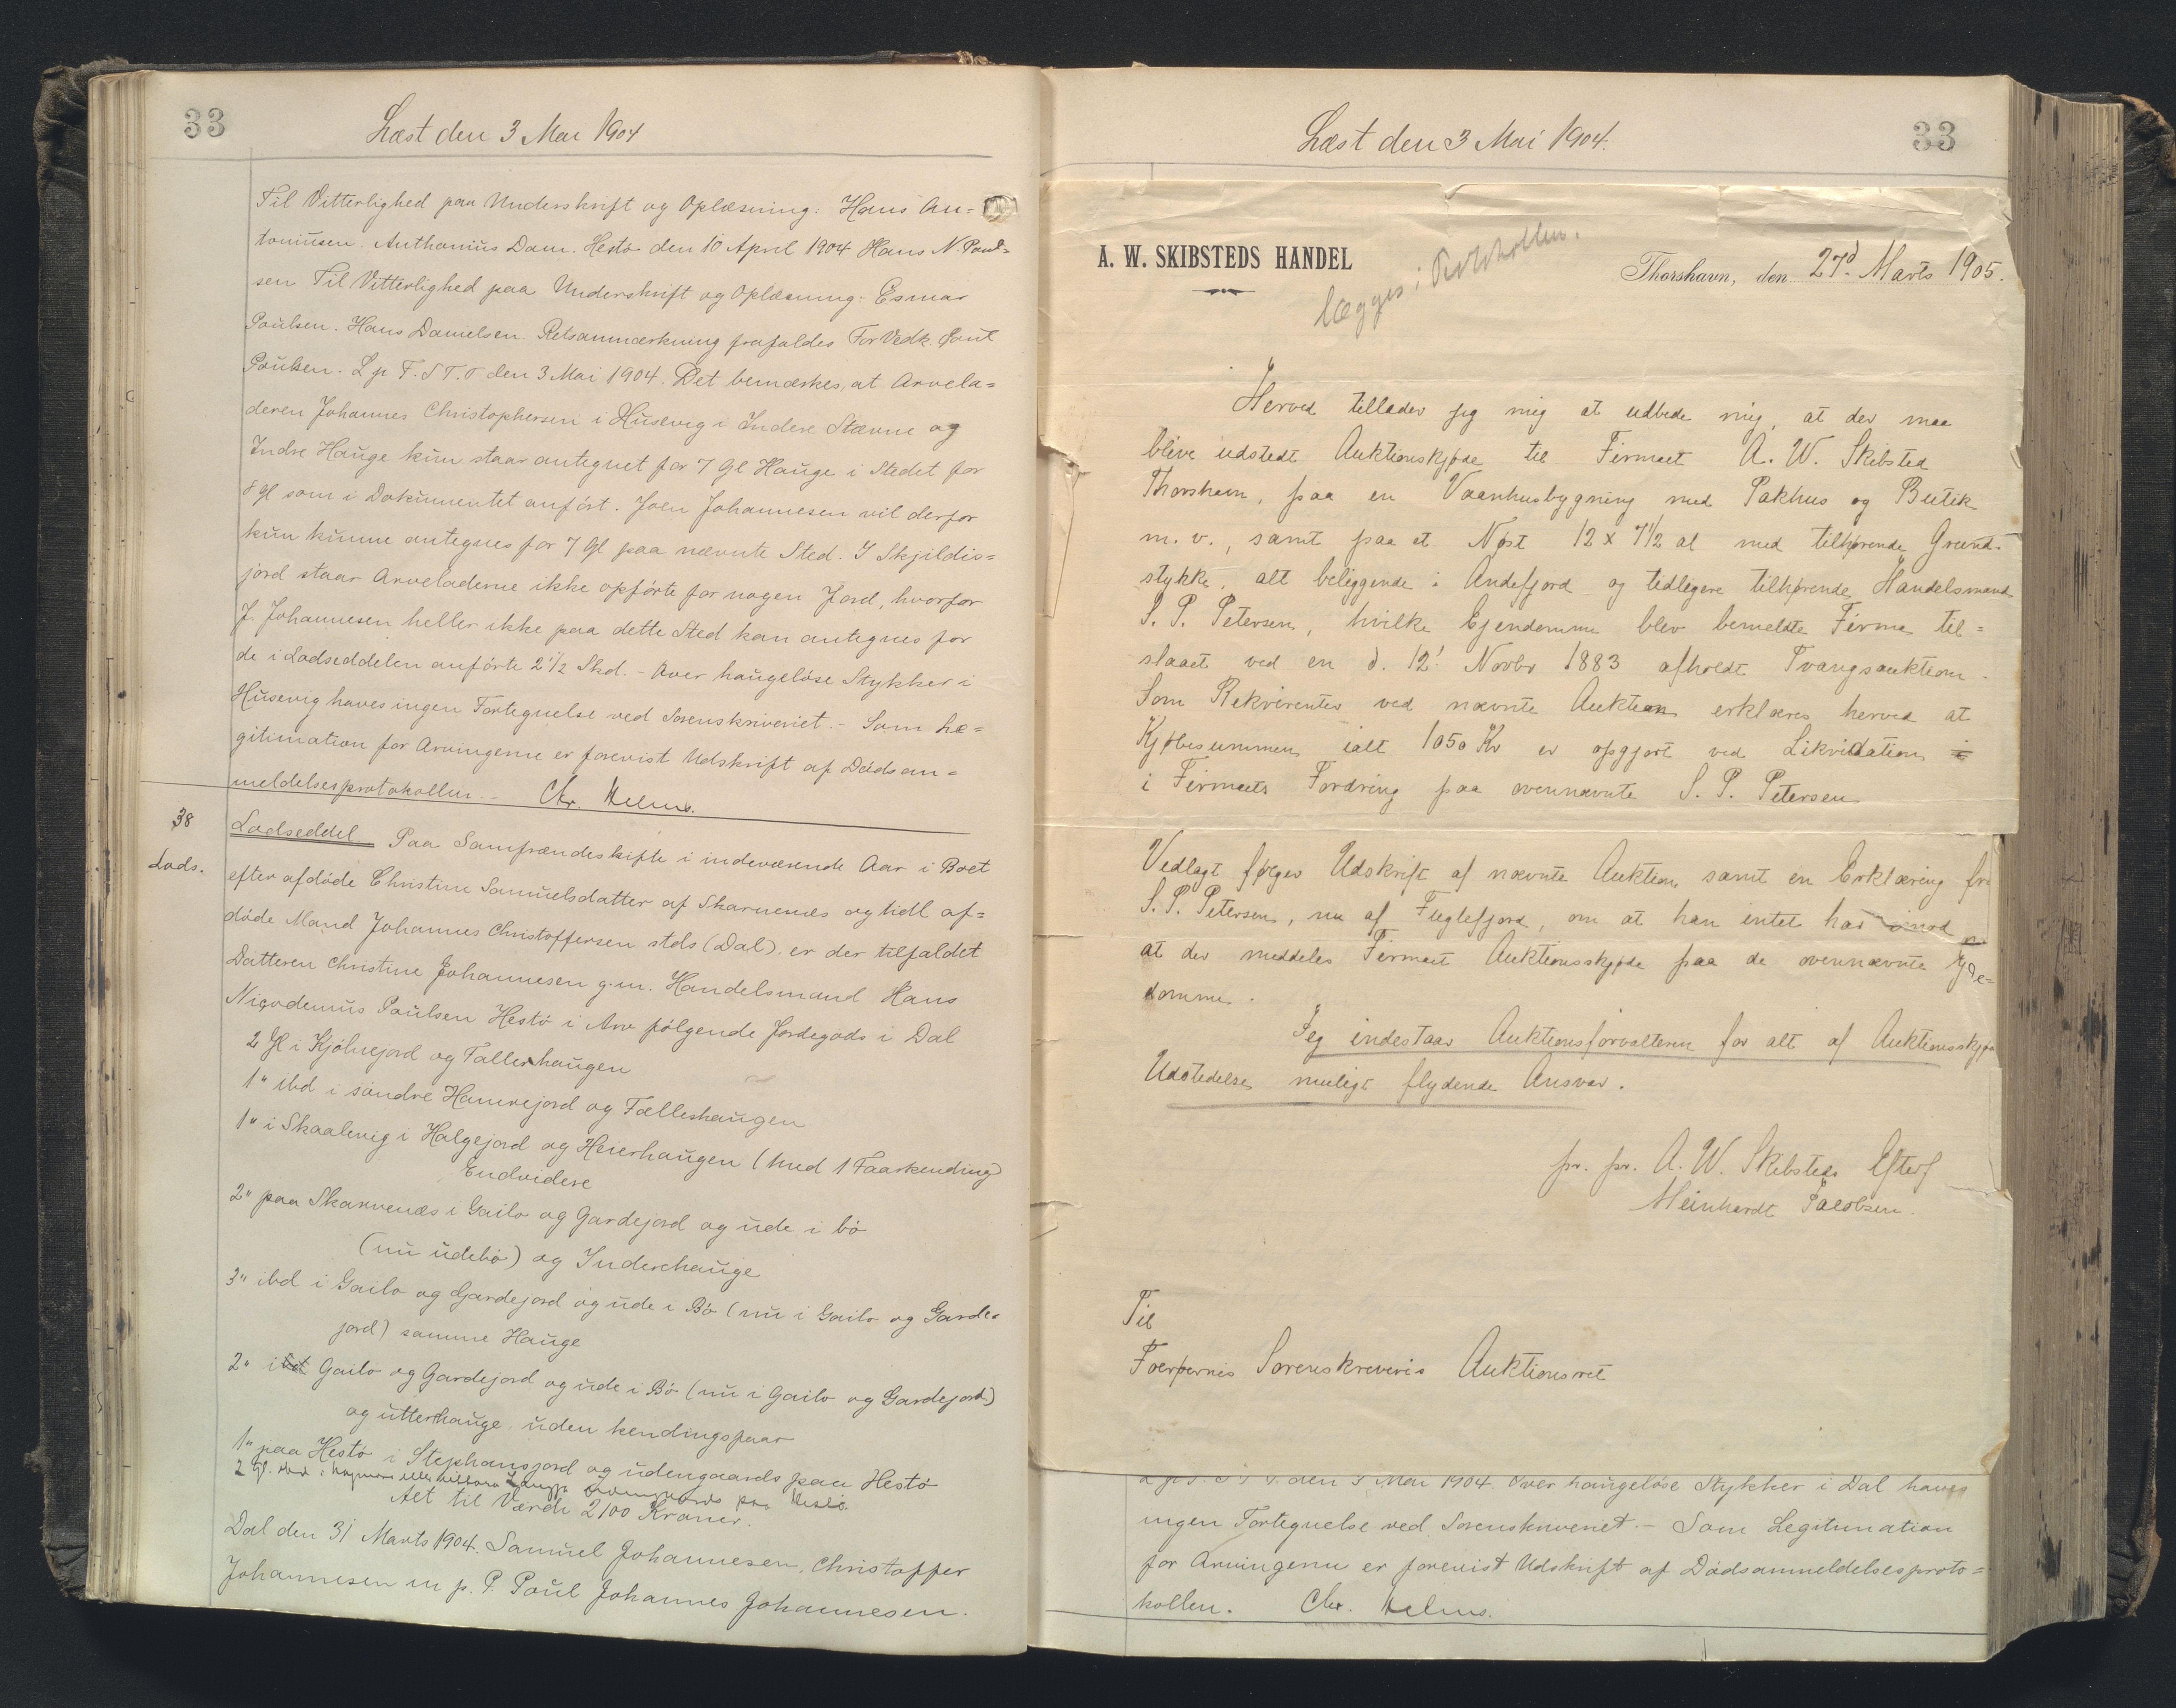 33
Læst den 3 Mai 1904
Til Vitterlighed paa Underskrift og Oplæsning: Hans An=
toniüsen. Anthoniüs Dam. Hestö den 10 April 1904 Hans N. Poul=
sen Til Vitterlighed paa Underskrift og Oplæsning: Esmar
Poülsen. Hans Danielsen. Retsanmærkning frafaldes For Vedk. Poül
Poülsen. L p F. S T. T den 3 Mai 1904. Det bemærkes, at Arvela=
deren Johannes Christophersen i Hüsevig i Indere Stævne og
Indre Haüge kün staar antegnet for 7 Gl Haüge i Stedet for
8 Gl som i Dokümentet anfört. Joen Johannesen vil derfor
kün künne antegnes for 7 Gl paa nævnte Sted. I Skjildis=
jord staar Arveladerne ikke opförte for nogen Jord, hvorfor
J. Johannesen heller ikke paa dette Sted kan antegnes for
de i Lodseddelen anförte 2 1/2 Skd. - Over haügelöse Stykker i
Hüsevig haves ingen Fortegnelse ved Sorenskriveriet. - Som Le=
gitimation for Arvingerne er forevist Udskrift af Dödsan=
meldelsesprotokollen. - Chr. Helms.
38
Lods.
Lodseddel Paa Samfrændeskifte i indeværende Aar i Boet
efter afdöde Christine Samüelsdatter af Skarvenæs og tidl af=
döde Mand Johannes Christoffersen stds (Dal) er der tilfaldet
Datteren Christine Johannesen g.m. Handelsmand Hans
Nicodemüs Poülsen Hestö i Arv fölgende Jordegods i Dal
2 Gl i Kjölnejord og Fælleshaügen
1 " ibd i söndre Hamrejord og Fælleshaügen
1 " i Skaalevig i Halgejord og Heierhaügen (med 1 Faarkending)
Endvidere
2 " paa Skarvenæs i Gailo og Gardejord og üde i bö
(nü üdebö) og Inderehaüge
3 " ibd i Gailo og Gardejord og üde i Bö (nü i Gailo og Garde=
jord) samme Haüge
2 " i Gailo og Gardejord og üde i Bö (nü i Gailo og Gardejord)
og ütterhaüge, üden kendingsfaar
1 " paa Hestö i Stephansjord og üdengaards paa Hestö
2 Gl. paa Hestö.
Alt til Værdi 2100 Kroner.
Dal den 31 Marts 1904. Samüel Johannesen, Christoffer
Johannesen m p. P. Poül Johannes Johannesen.
Læst den 3 Mai 1904.
33
A. W. SKIBSTEDS HANDEL
lægges i Protokollen.
Thorshavn, den 27d. Marts 1905.
Herved tillader jeg mig at udbede mig, at der maa
blive udstedt Auktionskjøde til Firmaet A. W. Skibsted
Thorshavn, paa en Vaanhusbygning med Pakhus og Butik
m. v., samt paa et Nøst 12 x 7 1/2 al med tilhørende Grund-
stykke, alt beliggende i Andefjord og tidligere tilhørende Handelsmand
S. P. Petersen, hvilke Ejendomme blev bemeldte Firma til=
slaaet ved en d. 12' Novbr 1883 afholdt Tvangsauktion.
Som Rekvirenter ved nævnte Auktion erklæres herved at
Kjøbesummen ialt 1050 Kr er opgjort ved Likvidation i
i Firmaets Fordring paa ovennævnte S. P. Petersen
Vedlagt følger Udskrift af nævnte Auktion samt en Erklæring fr
S. P. Petersen, nu af Fuglefjord, om at han intet har imod
at der meddeles Firmaet Auktionsskjøde paa de ovennævnte Eje=
domme.
Jeg indestaar Auktionsforvalteren for alt af Auktionsskjø
Udstedelse muligt flydende Ansvar.
pr. pr. A. W. Skibsteds Efterf
Meinhardt Jacobsen.
Til
Færøernes Sorenskriveris Auktionsret
den 3 Mai 1904. Over haügelöse Stykker i Dal haves
ingen Fortegnelse ved Sorenskriveriet. - Som Legitimation
for Arvingerne er forevist Udskrift af Dödsanmeldelsesproto=
kollen. Chr. Helms.